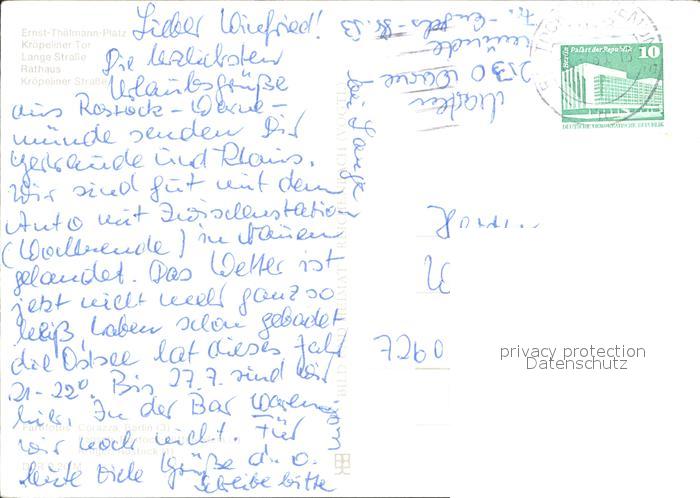 Ernst-Thälmann-Platz
Kröpeliner Tor
Lange Straße
Rathaus
Kröpeliner Straße
Lieber Winfried!
Die herzlichsten
Urlaubsgrüße
aus Rostock-Warne-
münde senden Dir
Gertraude und Klaus.
Wir sind gut mit dem
Auto mit Zwischenstation
(Wochenende) in Nauen
gelandet. Das Wetter ist
jetzt nicht mehr ganz so
heiß, haben schon gebadet
die Ostsee hat dieses Jahr
21-22°. Bis 27.7. sind wir
hier. In der Bar waren
wir noch nicht. Für
heute viele Grüße
schreibe bitte
bei Lange
2530 Warne-
münde
Fr.-Engels-Str. 53
Berlin Palast der Republik
10
DEUTSCHE DEMOKRATISCHE REPUBLIK
privacy protection
Datenschutz